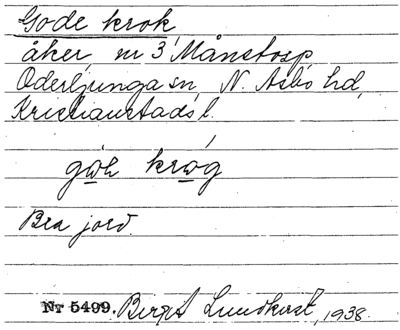 Gode krok
åker, nr 3 Månstorp
Oderljunga sn, N. Asbo hd,
Kristianstads l.
gωh krωg
Bra jord.
Nr 5499. Birgit Lundkvist, 1938.